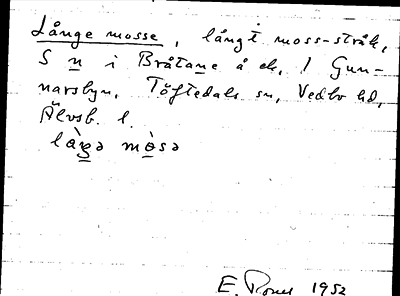 Långe mosse, långt moss-stråk,
S n i Bråtane å ek. 1 Gun-
narsbyn, Töftedals sn, Vedbo hd,
Älvsb. l.
làŋə mòsə
E. 1952